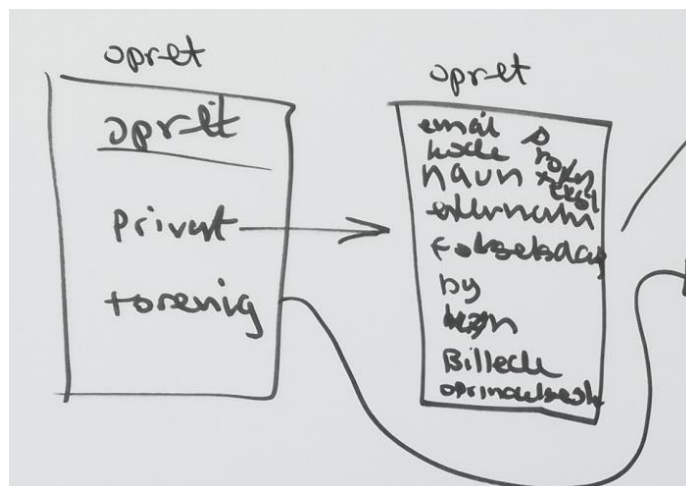 opret
opret
privat
forenig
opret
email
kode
navn
efternavn
fødselsdag
by
køn
Billede